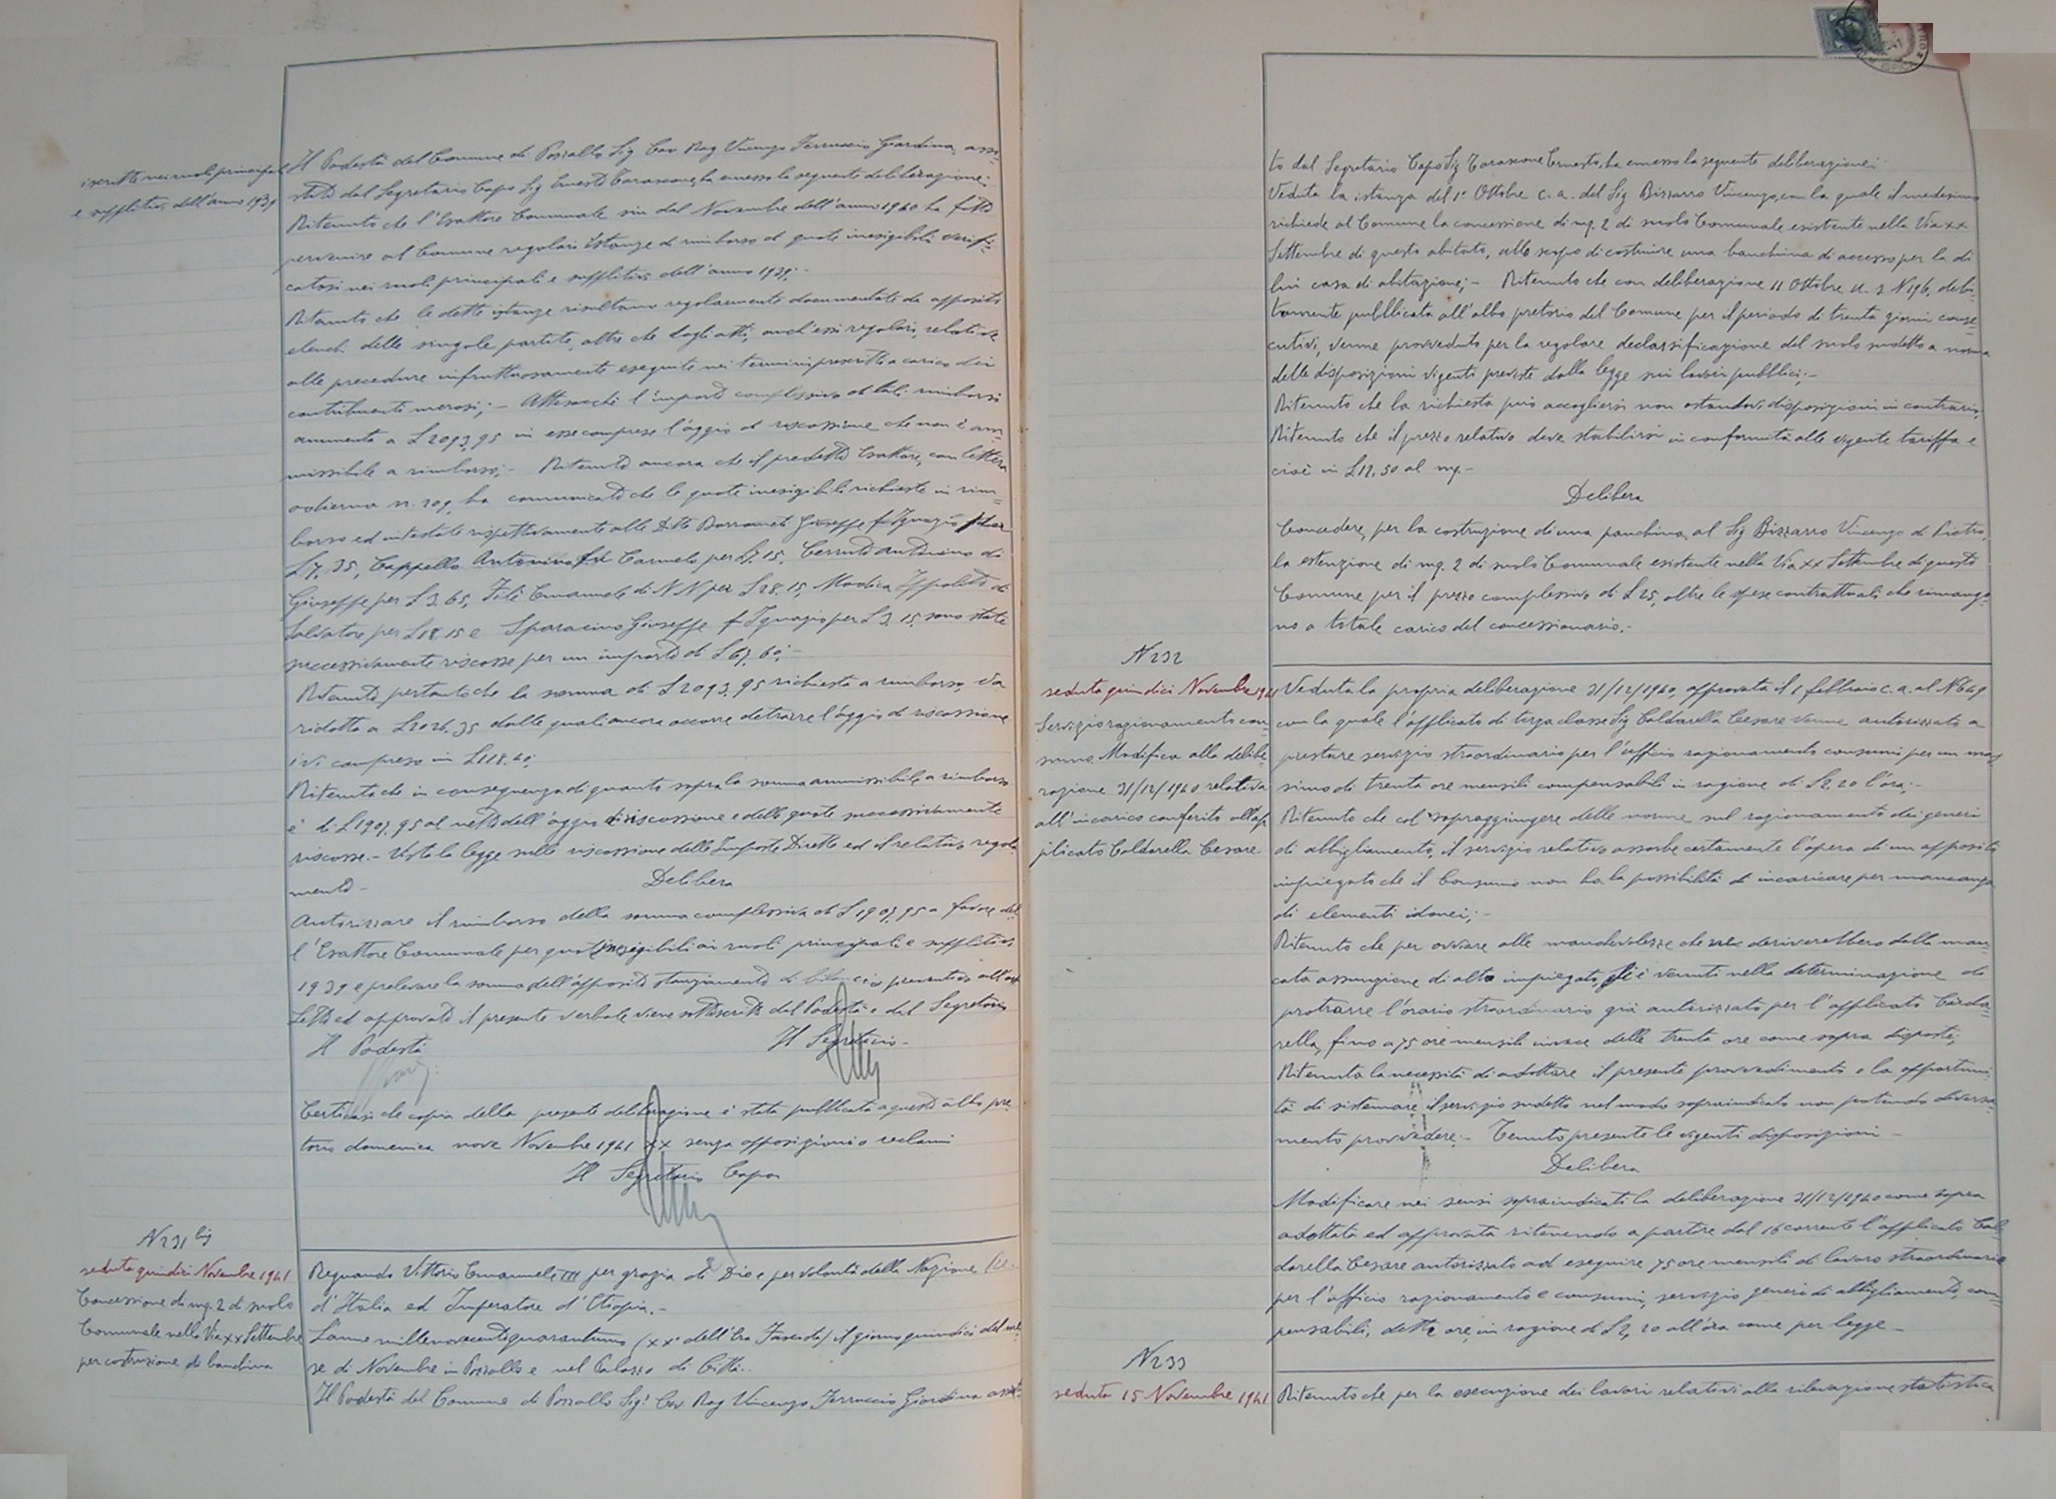 iscritte nei ruoli principali
e suppletivi dell'anno 1939
Il Podestà del Comune di Pozzallo Sig Cav Rag Vincenzo Ferruccio Giardina, assi-
stito dal Segretario Capo Sig Ernesto Tarascone, ha emesso la seguente deliberazione:
Ritenuto che l'Esattore Comunale sin dal Novembre dell'anno 1940 ha fatto
pervenire al Comune regolari istanze di rimborso di quote inesigibili verifi-
catosi nei ruoli principali e suppletivi dell'anno 1939;-
Ritenuto che le dette istanze risultano regolarmente documentate da appositi
elenchi delle singole partite, oltre che dagli atti, anch'essi regolari, relativi
alle procedure infruttuosamente eseguite nei termini prescritti a carico dei
contribuenti morosi;- Attesocchè l'importo complessivo di tali rimborsi
ammonta a L 2093,95 in esse comprese l'aggio di riscossione che non è am-
missibile a rimborso;- Ritenuto ancora che il predetto Esattore, con lettera
odierna n. 209, ha comunicato che le quote inesigibili richieste in rim-
borso ed intestate rispettivamente alle Ditte Giuseppe f Ignazio
L 7,35, Cappello Antonino fu Carmelo per L 7.15, Cerruto Antonino di
Giuseppe per L 3,65, Emanuele di NN per L 28.15, Modica Ippolito di
Salvatore per L 18.15 e Sparacino Giuseppe f Ignazio per L 3,15, sono state
successivamente riscosse per un importo di L 67,60;-
Ritenuto pertanto che la somma di L 2093,95 richiesta a rimborso, va
ridotta a L 2026.35 dalle quali ancora occorre detrarre l'aggio di riscossione
ivi compreso in L 118.40;
Ritenuto che in conseguenza di quanto sopra la somma ammissibile a rimborso
è di L 1907,95 al netto dell'aggio di riscossione e delle quote successivamente
riscosse.- Vista la legge sulla riscossione delle Imposte Dirette ed il relativo regola-
mento-
Delibera
Autorizzare il rimborso della somma complessiva di L 1907,95 a favore del-
l'Esattore Comunale per quote inesigibili ai ruoli principali e suppletivi
1939 e prelevare la somma dall'apposito stanziamento di bilancio preventivo
Letto ed approvato il presente verbale viene sottoscritto dal Podestà e dal Segretario
Il Podestà Il Segretario-
Certificasi che copia della presente deliberazione è stata pubblicata a questo albo pre-
torio domenica nove Novembre 1941 XX senza opposizioni o reclami
Il Segretario Capo
N 231 bis
seduta quindici Novembre 1941
Concessione di mq. 2 di suolo
Comunale nella Via XX Settembre
per costruzione di banchina
Regnando Vittorio Emanuele III per grazia di Dio e per volontà della Nazione Re
d'Italia ed Imperatore d'Etiopia.-
L'anno millenovecentoquarantuno (XX° dell'Era Fascista) il giorno quindici del me-
se di Novembre in Pozzallo e nel Palazzo di Città.-
Il Podestà del Comune di Pozzallo Sig. Cav Rag Vincenzo Ferruccio Giardina assi-
to dal Segretario Capo Sig Tarascone Ernesto, ha emesso la seguente deliberazione:
Veduta la istanza del 1° Ottobre c.a. del Sig Bizzarro Vincenzo, con la quale il medesimo
richiede al Comune la concessione di mq. 2 di suolo Comunale esistente nella Via XX
Settembre di questo abitato, allo scopo di costruire una banchina di accesso per la di
lui casa di abitazione;- Ritenuto che con deliberazione 11 Ottobre u.s. N 196, debi-
tamente pubblicata all'albo pretorio del Comune per il periodo di trenta giorni conse-
cutivi, venne provveduto per la regolare declassificazione del suolo suddetto a norma
delle disposizioni vigenti previste dalla legge sui lavori pubblici;-
Ritenuto che la richiesta può accogliersi non ostandovi disposizioni in contrario.
Ritenuto che il prezzo relativo deve stabilirsi in conformità alle vigente tariffa e
cioè in L 12,50 al mq.-
Delibera
Concedere, per la costruzione di una panchina, al Sig Bizzarro Vincenzo di Pietro,
la estenzione di mq. 2 di suolo Comunale esistente nella Via XX Settembre di questo
Comune per il prezzo complessivo di L 25, oltre le spese contrattuali che rimango-
no a totale carico del concessionario.-
N 232
seduta quindici Novembre 1941
Servizio razionamento con-
sumo. Modifica alla delibe-
razione 31/12/1940 relativa
all'incarico conferito all'ap-
plicato Caldarella Cesare
Veduta la propria deliberazione 31/12/1940, approvata il 1 febbraio c.a. al N 649
con la quale l'applicato di terza classe Sig Caldarella Cesare venne autorizzato a
prestare servizio straordinario per l'ufficio razionamento consumi per un mas-
simo di trenta ore mensili compensabili in ragione di L 2.20 l'ora;-
Ritenuto che col sopraggiungere delle norme sul razionamento dei generi
di abbigliamento, il servizio relativo assorbe certamente l'opera di un apposito
impiegato che il Consumo non ha la possibilità di incaricare per mancanza
di elementi idonei;-
Ritenuto che per ovviare alle manchevolezze che deriverebbero dalla man-
cata assunzione di altro impiegato, si è venuti nella determinazione di
protrarre l'orario straordinario già autorizzato per l'applicato Calda-
rella, fino a 75 ore mensili invece delle trenta ore come sopra disposte;
Ritenuta la necessità di adottare il presente provvedimento e la opportuni-
tà di sistemare il servizio suddetto nel modo sopraindicato non potendo diversa-
mente provvedere:- Tenuto presente le vigenti disposizioni-
Delibera
Modificare nei sensi sopraindicati la deliberazione 31/12/1940 come sopra
adottata ed approvata ritenendo a partire dal 16 corrente l'applicato Cal-
darella Cesare autorizzato ad eseguire 75 ore mensili di lavoro straordinario
per l'ufficio razionamento e consumi, servizio generi di abbigliamento, com-
pensabili, dette ore, in ragione di L 2,20 all'ora come per legge-
N 233
seduta 15 Novembre 1941
Ritenuto che per la esecuzione dei lavori relativi alla rilevazione statistica